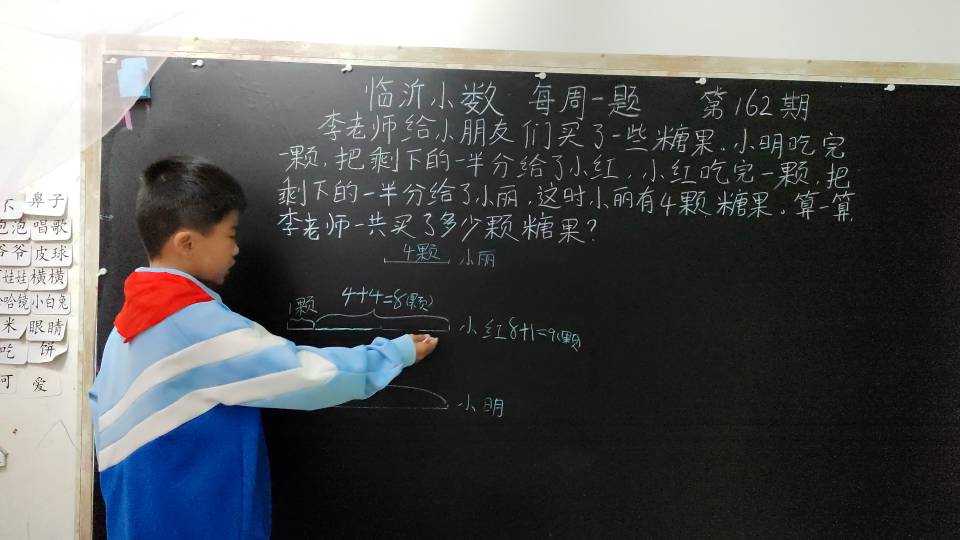 临沂小数 每周一题 第162期
李老师给小朋友们买了一些糖果。小明吃完
一颗,把剩下的一半分给了小红,小红吃完一颗,把
剩下的一半分给了小丽,这时小丽有4颗糖果。算一算
李老师一共买了多少颗糖果?
4颗 小丽
1颗 4+4=8(颗)
小红 8+1=9(颗)
小明
鼻子
唱歌
爷爷 皮球
娃娃 横横
哈哈镜 小白兔
米 眼睛
吃 饼
可 爱